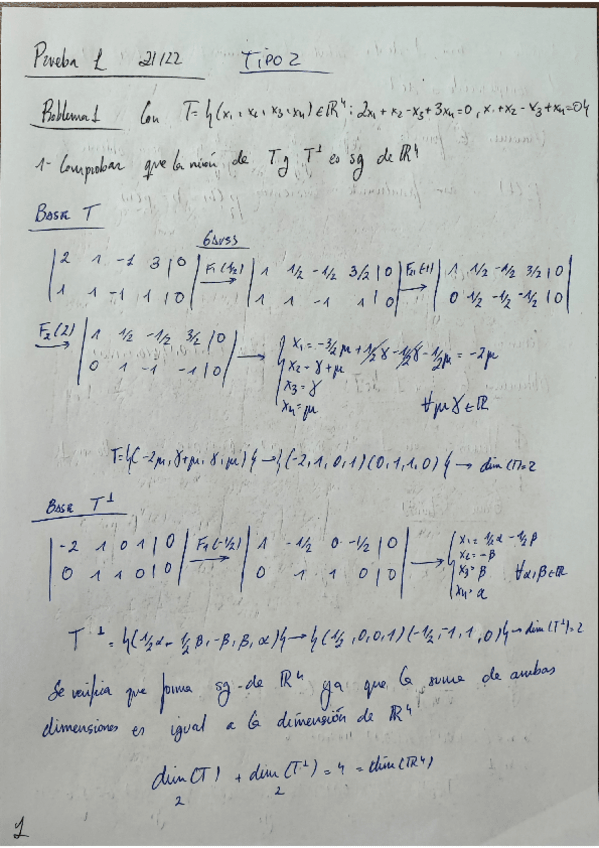 Prueba 1 21/22 TIPO 2
Problema 1 Con T = {(x1, x2, x3, x4) ∈ ℝ⁴ : 2x1 + x2 - x3 + 3x4 = 0, x1 + x2 - x3 + x4 = 0}
1- Comprobar que la unión de T y T⊥ es sg de ℝ⁴
BASE T
GAUSS
| 2 1 -1 3 | 0 | F1(1/2) | 1 1/2 -1/2 3/2 | 0 | F21(-1) | 1 1/2 -1/2 3/2 | 0 |
| 1 1 -1 1 | 0 | → | 1 1 -1 1 | 0 | → | 0 1/2 -1/2 -1/2 | 0 |
F2(2) → | 1 1/2 -1/2 3/2 | 0 | → { x1 = -3/2μ + 1/2γ - 1/2γ - 1/2μ = -2μ
| 0 1 -1 -1 | 0 | x2 = γ + μ
x3 = γ
x4 = μ ∀μ,γ∈ℝ
T = {(-2μ, γ+μ, γ, μ)} → {(-2, 1, 0, 1)(0, 1, 1, 0)} → dim(T)=2
BASE T⊥
| -2 1 0 1 | 0 | F1(-1/2) | 1 -1/2 0 -1/2 | 0 | → { x1 = 1/2α - 1/2β
| 0 1 1 0 | 0 | → | 0 1 1 0 | 0 | x2 = -β
x3 = β ∀α,β∈ℝ
x4 = α
T⊥ = {(1/2α - 1/2β, -β, β, α)} → {(1/2, 0, 0, 1)(-1/2, -1, 1, 0)} → dim(T⊥)=2
Se verifica que forma sg de ℝ⁴ ya que la suma de ambas
dimensiones es igual a la dimensión de ℝ⁴
dim(T) + dim(T⊥) = 4 = dim(ℝ⁴)
2 2
1